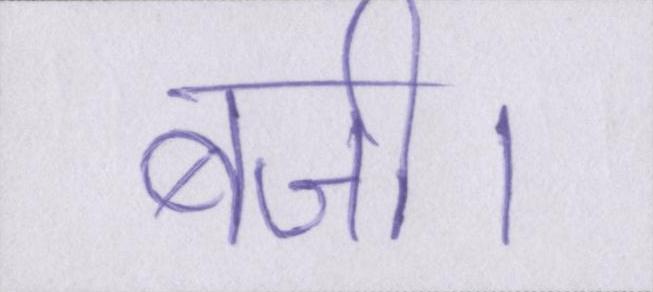 बजी।